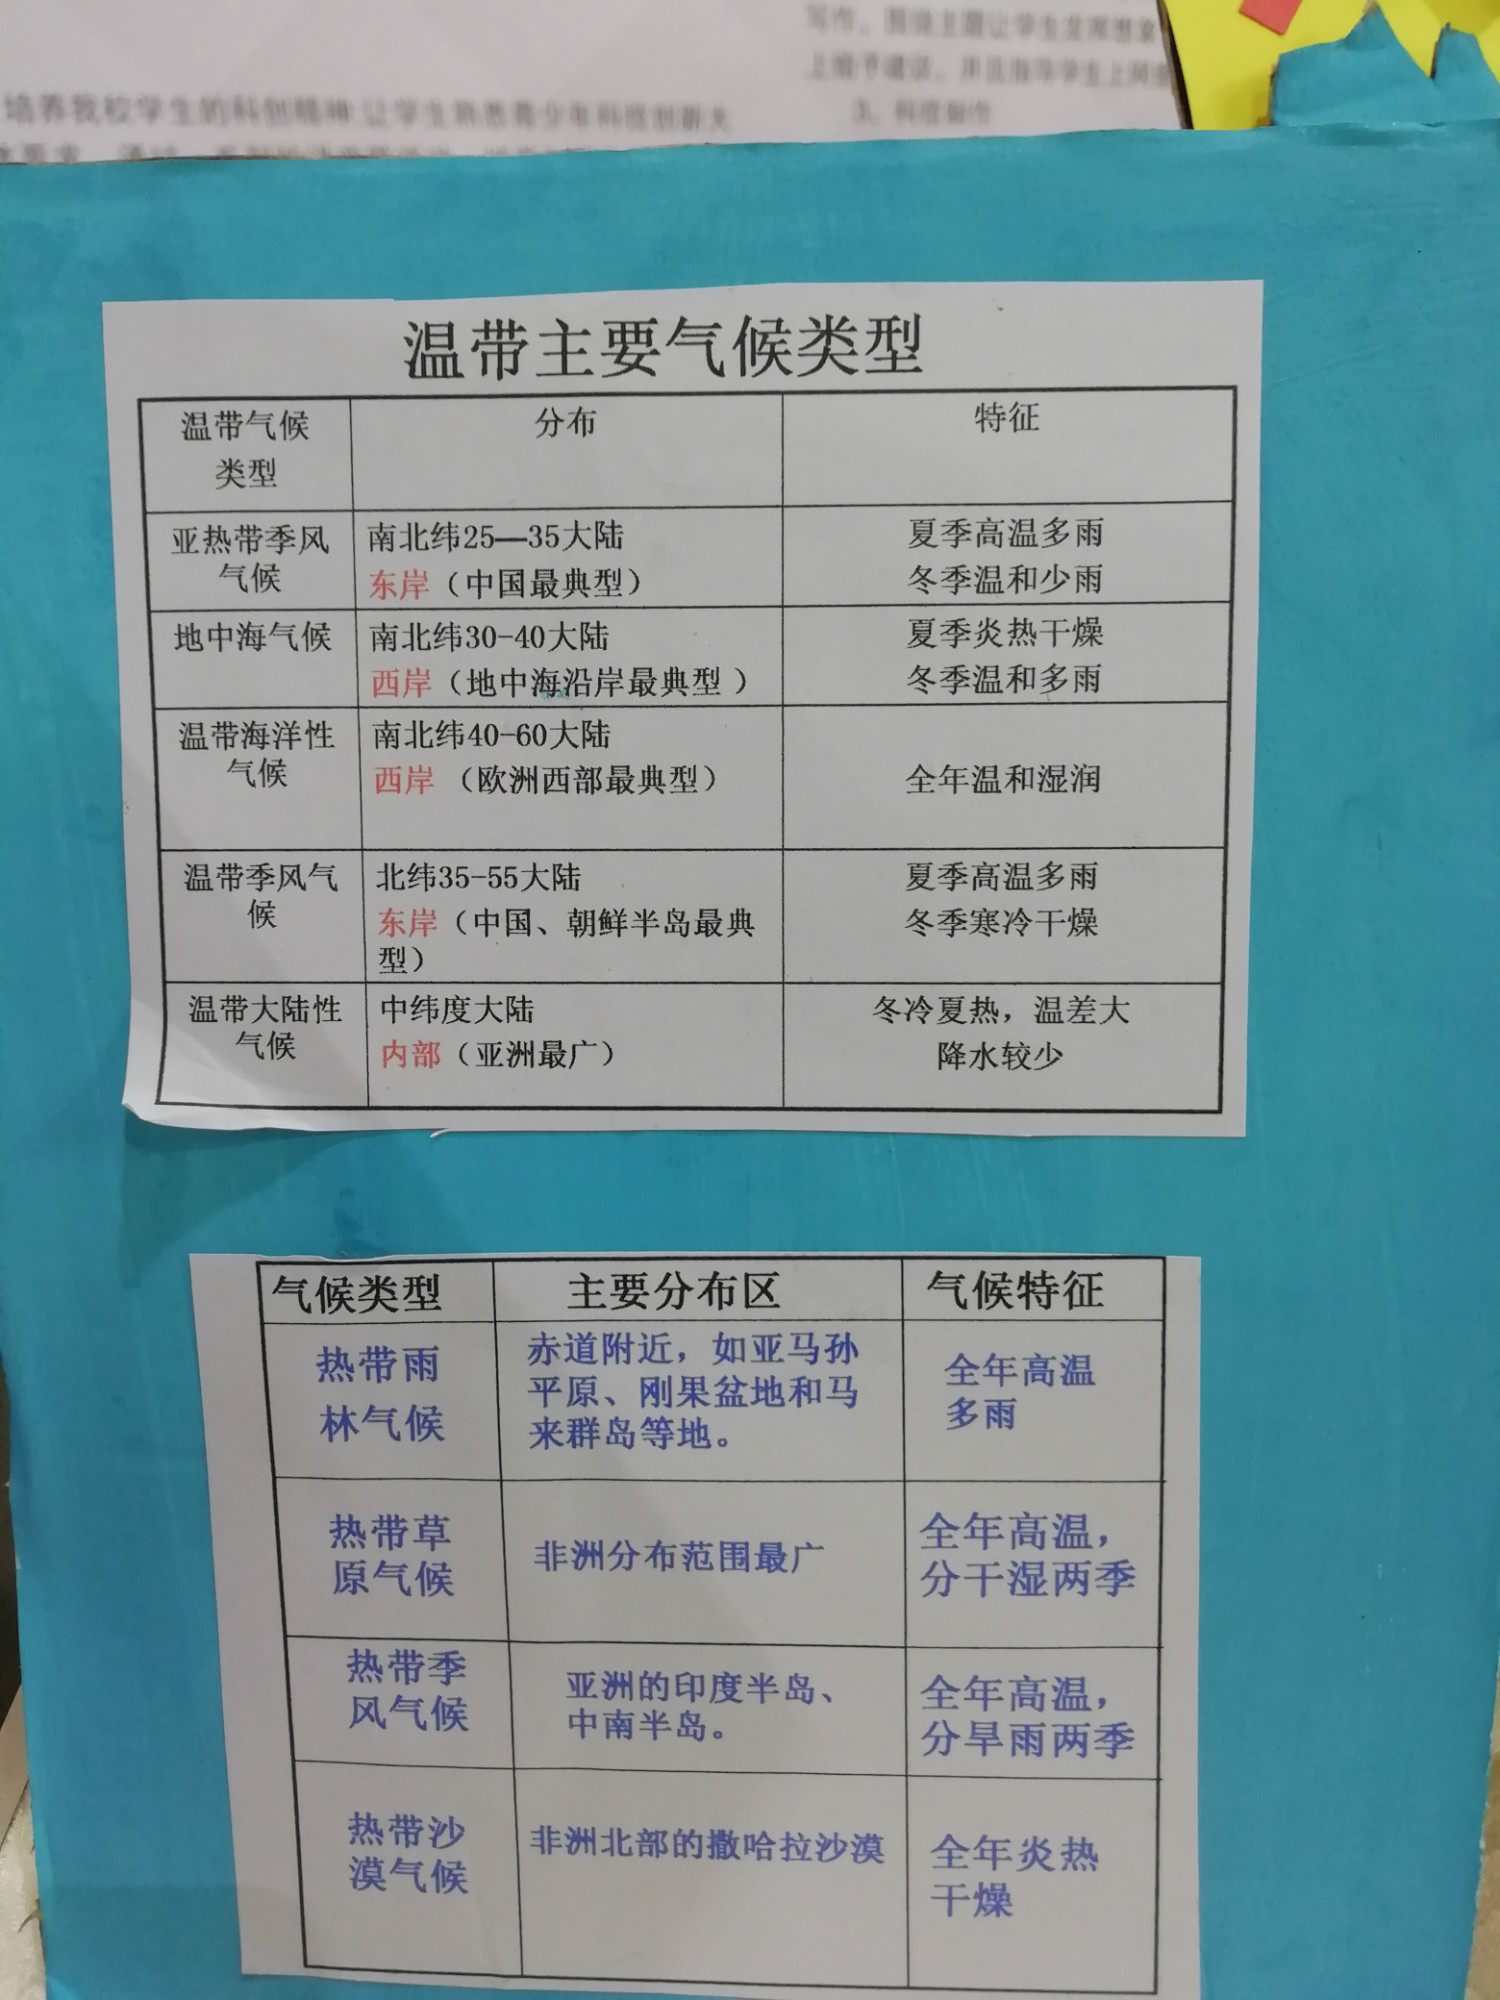 培养我校学生的科创精神,让学生熟悉青少年科技创新大
温带主要气候类型
温带气候
类型
分布
特征
亚热带季风
气候
南北纬25—35大陆
东岸（中国最典型）
夏季高温多雨
冬季温和少雨
地中海气候
南北纬30-40大陆
西岸（地中海沿岸最典型 ）
夏季炎热干燥
冬季温和多雨
温带海洋性
气候
南北纬40-60大陆
西岸 （欧洲西部最典型）
全年温和湿润
温带季风气
候
北纬35-55大陆
东岸（中国、朝鲜半岛最典
型）
夏季高温多雨
冬季寒冷干燥
温带大陆性
气候
中纬度大陆
内部（亚洲最广）
冬冷夏热，温差大
降水较少
气候类型
主要分布区
气候特征
热带雨
林气候
赤道附近，如亚马孙
平原、刚果盆地和马
来群岛等地。
全年高温
多雨
热带草
原气候
非洲分布范围最广
全年高温，
分干湿两季
热带季
风气候
亚洲的印度半岛、
中南半岛。
全年高温，
分旱雨两季
热带沙
漠气候
非洲北部的撒哈拉沙漠
全年炎热
干燥